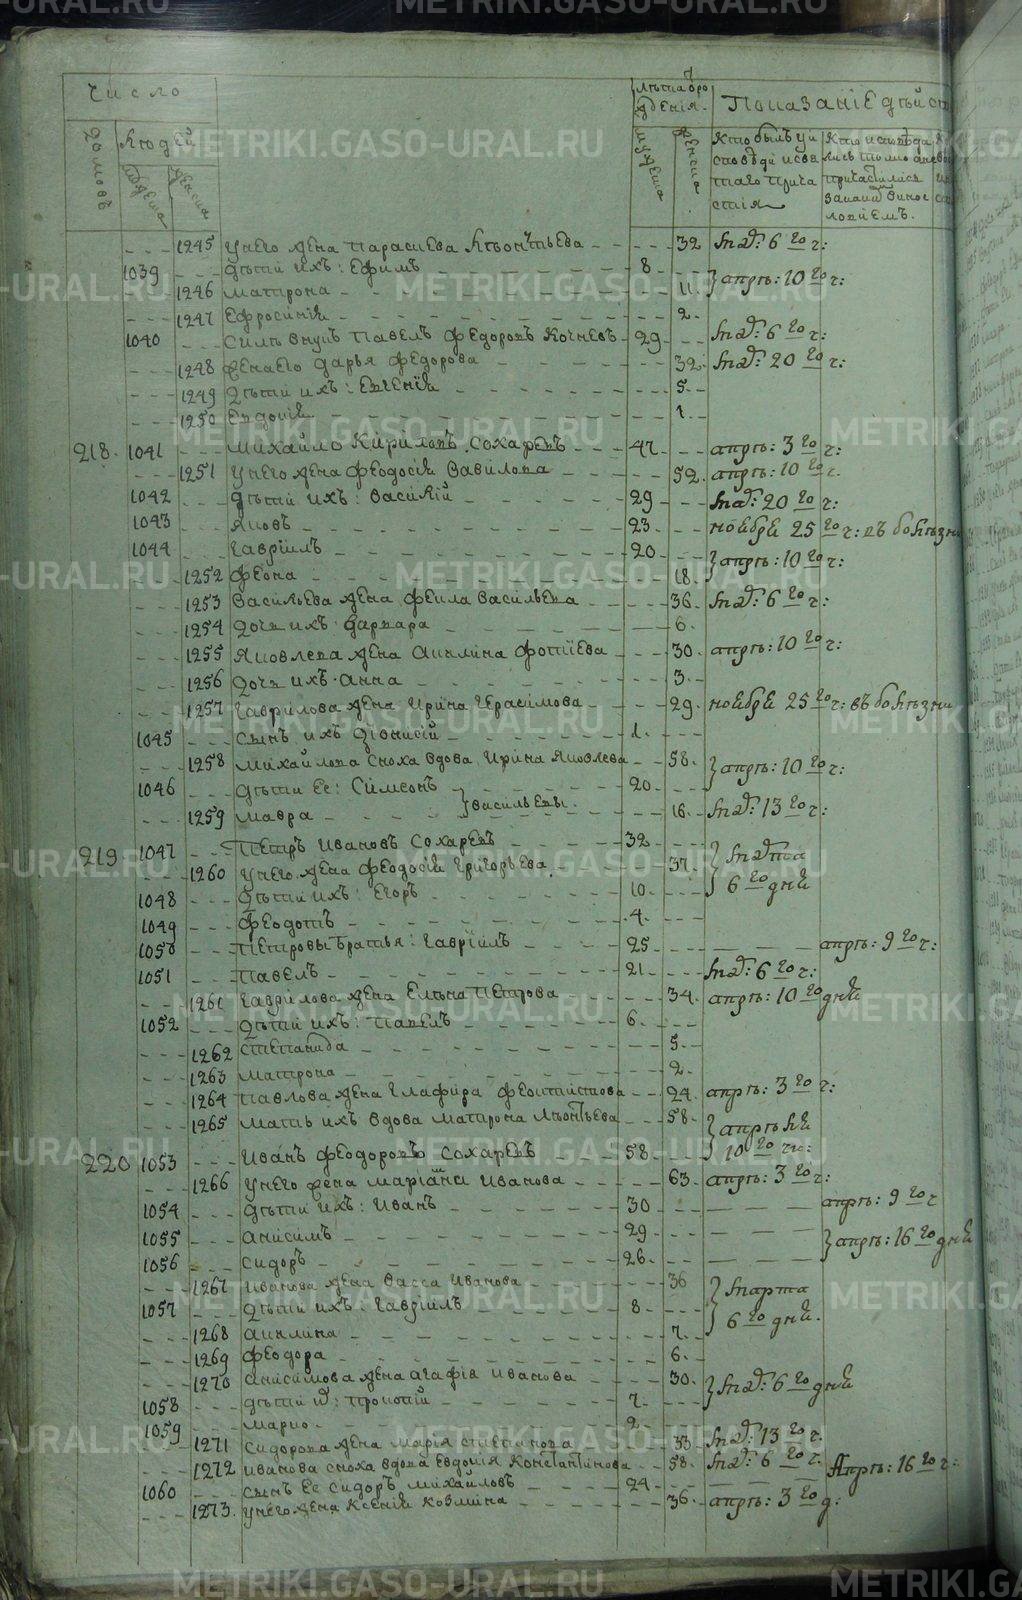 Число
Лѣта рождения
Показанiе дѣйст
Домовъ
Людей
Мужеска
Женска
Мужеска
Женска
Кто былъ у исповѣди и свя таго прича стiя
- - - 1245 У него жена Парасиева Леонтьева - - - - - 32 Ма: 6 го ч:
1039 - - - Дѣти ихъ: Ефимъ - - - 8 - апрѣ: 10 го ч:
- - - 1246 Матрона - - - 11
- - - 1247 Ефросинiя - - - 2
1040 - - - Павелъ Федоровъ Кочневъ - 29 - Ма: 6 го ч:
- - - 1248 Жена его Дарья Федорова - - - 32 Ма: 20 го ч:
- - - 1249 Дѣти ихъ: Евгенiя - - - 5
- - - 1250 Евдокiя - - - 1
218 1041 - - - Михайло Кириловъ Сохаревъ - 47 - апрѣ: 3 го ч:
- - - 1251 У него жена Феодосiя Вавилова - - - 52 апрѣ: 10 го ч.
1042 - - - Дѣти ихъ: Василiй - 29 - Ма: 20 го ч:
1043 - - - Яковъ - - - 23 - - ноября 25 го ч: въ болѣзни
1044 - - - Гаврiилъ - - - 20 - апрѣ: 10 го ч:
- - - 1252 Феона - - - 18
- - - 1253 Васильева жена Фекла Васильева - - - 36 Ма: 6 го ч:
- - - 1254 Дочь ихъ Варвара - - - 6
- - - 1255 Яковлева жена Акилина Фотiева - - - 30 апрѣ: 10 го ч:
- - - 1256 Дочь ихъ Анна - - - 3
- - - 1257 Гаврилова жена Ирина Герасимова - - - 29 ноября 25 го ч: въ болѣзни
1045 - - - Сынъ ихъ Дiонисiй - - - 1
- - - 1258 Михайлова сноха вдова Ирина Яковлева - - 58 апрѣ: 10 го ч:
1046 - - - Дѣти ее: Симеонъ - - 20
- - - 1259 Мавра - - - Васильевы. - - 16 Ма: 13 го ч:
219 1047 - - - Петръ Ивановъ Сохаревъ - - 32 - Марта
- - - 1260 У него жена Феодосiя Григорьева - - - 37 6 го дня
1048 - - - Дѣти ихъ: Егоръ - - - 10
1049 - - - Феодотъ - - - 4
1050 - - - Петровы братья: Гаврiилъ - - 25 - - - апрѣ: 9 го ч:
1051 - - - Павелъ - - - 21 - Ма: 6 го ч:
- - - 1261 Гаврилова жена Елена Петрова - - - 34 апрѣ: 10 го дня
1052 - - - Дѣти ихъ: Павелъ - - - 6
- - - 1262 Степанида - - - 5
- - - 1263 Матрона - - - 2
- - - 1264 Павлова жена Глафира Феоктистова - - 24 апрѣ: 3 го ч:
- - - 1265 Мать ихъ вдова Матрона Леонтьева - - 58 апрѣля
220 1053 - - - Иванъ Феодоровъ Сохаревъ - 58 - 10 го чи:
- - - 1266 У него жена Марiанна Иванова - - - 63 апрѣ: 3 го ч:
1054 - - - Дѣти ихъ: Иванъ - - - 30 - - - апрѣ: 9 го ч
1055 - - - Анисимъ - - - 29 - - - апрѣ: 16 го дня
1056 - - - Сидоръ - - - 26
- - - 1267 Иванова жена Васса Иванова - - - 36 Марта
1057 - - - Дѣти ихъ: Гаврiилъ - - - 8 - 6 го дня.
- - - 1268 Акилина - - - 7
- - - 1269 Феодора - - - 6
- - - 1270 Анисимова жена Агафiя Иванова - - - 30 Ма: 6 го дня
1058 - - - Дѣти и: Прокопiй - - - 7
1059 - - - Марко - - - 2
- - - 1271 Сидорова жена Марья Степанова - - - 33 Ма: 13 го ч.
- - - 1272 Иванова сноха вдова Евдокiя Константинова - - 58 Ма: 6 го ч. Апрѣ: 16 го ч:
1060 - - - Сынъ ее Сидоръ Михайловъ - - 24
- - - 1273 У него жена Ксенiя Козмина - - - 36 апрѣ: 3 го д:
METRIKI.GASO-URAL.RU